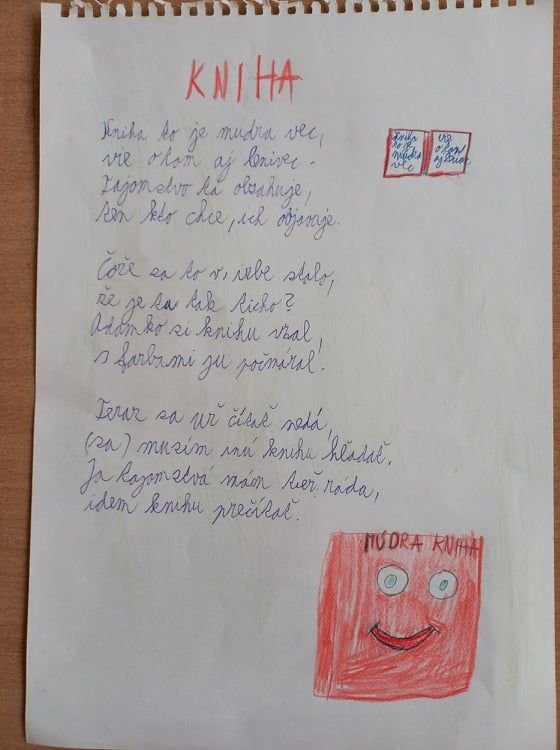 KNIHA
Kniha to je múdra vec,
vie o tom aj lenivec.
Tajomstvo ťa obsahuje,
ten kto chce, ich objavuje.
Čože sa to v izbe stalo,
že je tu tak ticho?
Adamko si knihu vzal,
s farbami ju počmáral.
Teraz sa už čítať nedá,
(sa) musím inú knihu hľadať.
Ja tajomstvá mám tiež rada,
idem knihu prečítať.
Kniha
to je
múdra
vec
vie
o tom
aj
MÚDRA KNIHA